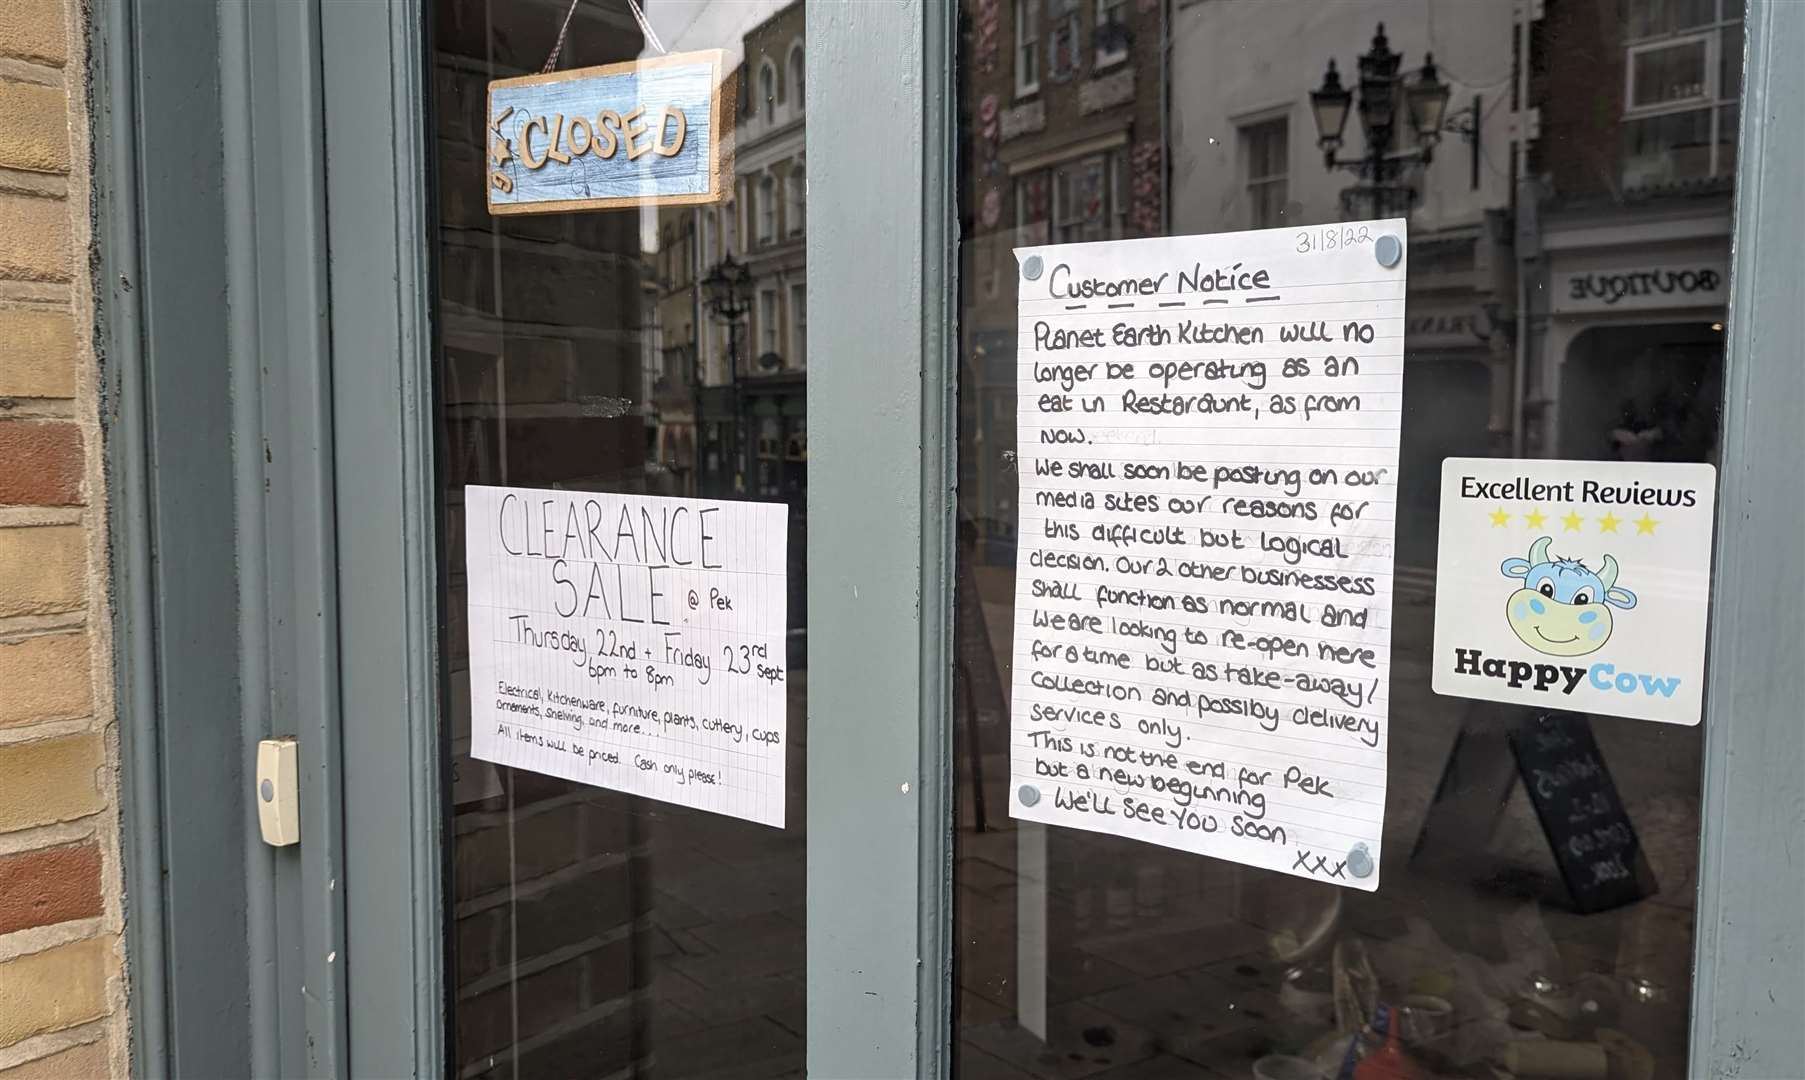 CLOSED
CLEARANCE
SALE @ Pek
Thursday 22nd + Friday 23rd Sept
6pm to 8pm
Electrical, Kitchenware, furniture, plants, cutlery, cups
ornements, shelving, and more...
All items will be priced. Cash only please!
31/8/22
Customer Notice
Planet Earth Kitchen will no
longer be operating as an
eat in Restaraunt, as from
now.
We shall soon be posting on our
media sites our reasons for
this difficult but logical
decsion. Our 2 other businessess
shall function as normal and
we are looking to re-open here
for a time but as take-away/
collection and possiby delivery
services only.
This is not the end for Pek
but a new beginning
We'll see you soon
xxx
Excellent Reviews
HappyCow
BOUTIQUE